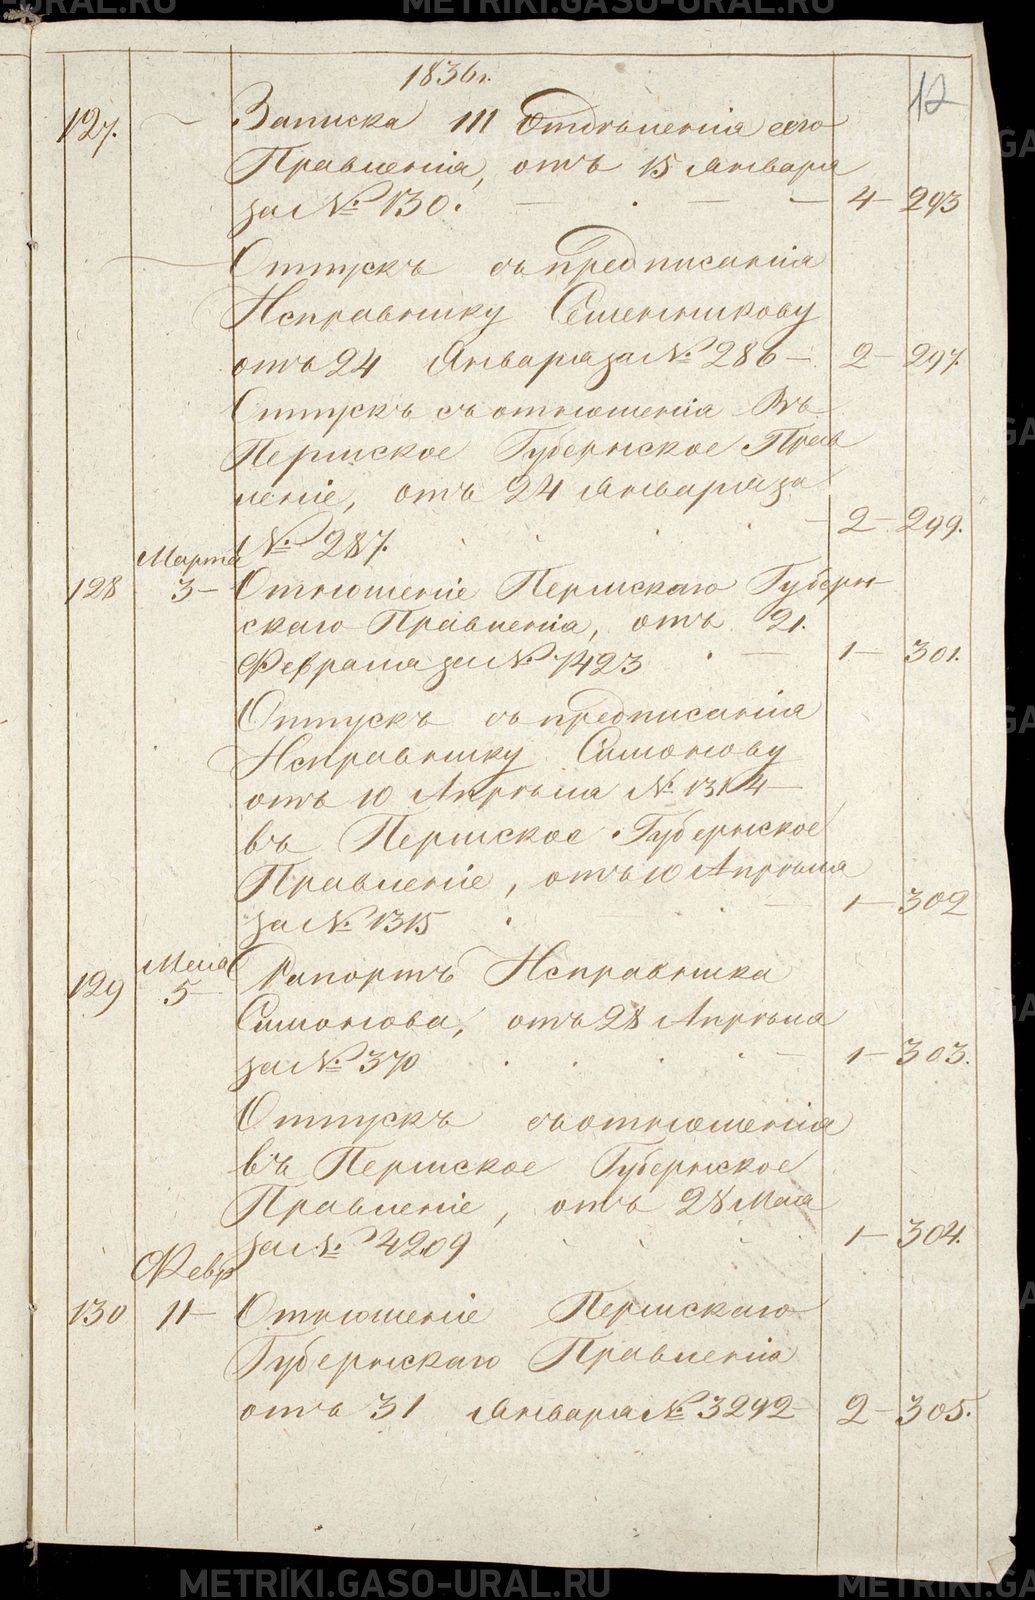 METRIKI.GASO-URAL.RU
1836г.
12
127. Записка III Отдѣленія сего
Правленія, отъ 15 Января
за № 130. 4 293
Отпускъ съ предписанія
Исправнику Семенникову
отъ 24 Января за № 286 2 297.
Отпускъ съ отношенія въ
Пермское Губернское Прав
леніе, отъ 24 Января за
№ 287. 2 299.
Марта
128 3 Отношеніе Пермскаго Губерн
скаго Правленія, отъ 21.
Февраля за № 7423 1 301.
Отпускъ съ предписанія
Исправнику Симонову
отъ 10 Апрѣля № 1314
въ Пермское Губернское
Правленіе, отъ 10 Апрѣля
за № 1315 1 302
Маія
129 5 Рапортъ Исправника
Симонова, отъ 28 Апрѣля
за № 370 1 303.
Отпускъ съ отношенія
въ Пермское Губернское
Правленіе, отъ 28 Мая
за № 4209 1 304.
Февр
130 11 Отношеніе Пермскаго
Губернскаго Правленія
отъ 31 Января № 3292 2 305.
METRIKI.GASO-URAL.RU